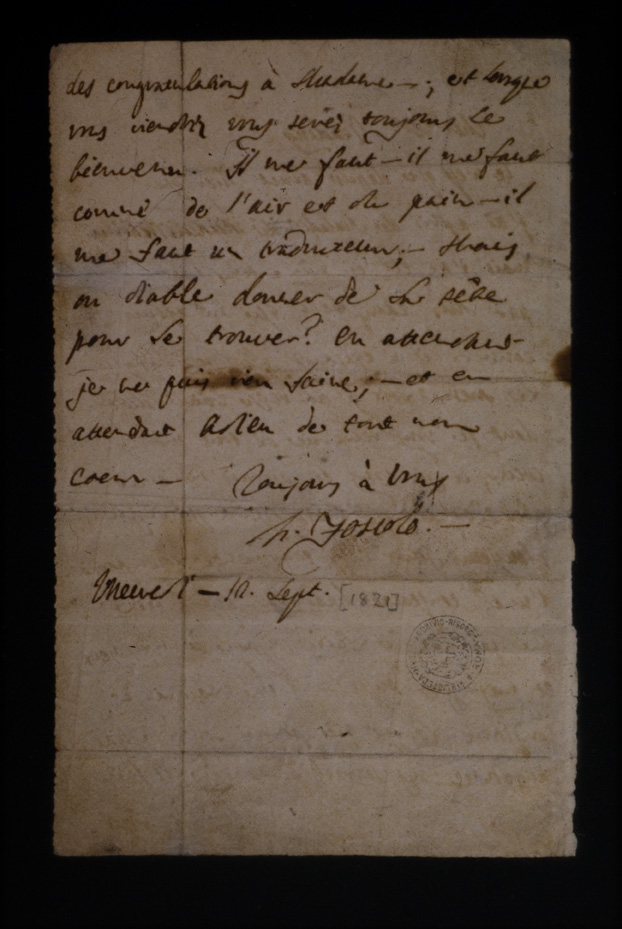 des congratulations à Madame —; et lorsque
vous viendrez vous serez toujours le
bienvenu. Il me faut — il me faut
comme de l'air et du pain — il
me faut un traducteur; — Mais
ou diable donner de la tête
pour le trouver? En attendant
je ne puis rien faire; — et en
attendant Adieu de tout mon
coeur — Toujours à Vous
U. Foscolo. —
Mecredi — 12. Sept. [1821]